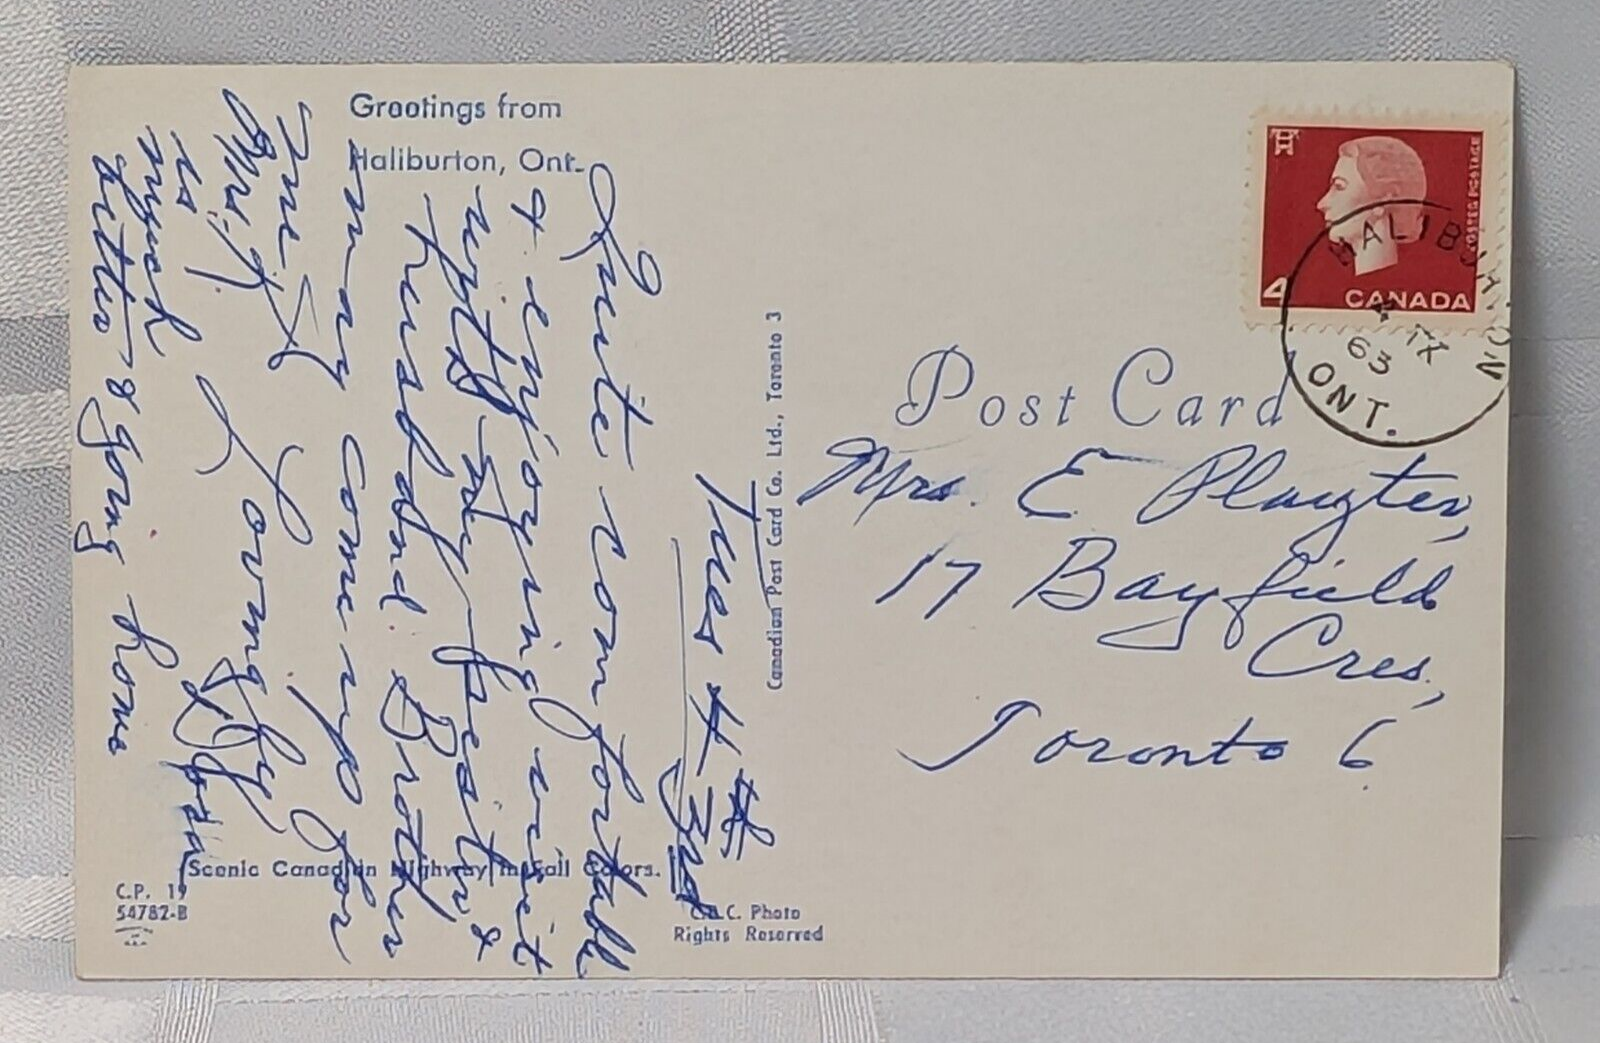 Greetings from
Haliburton, Ont.
Tues 4 th
3rd
Quite comfortable
& enjoying visit
with My Sister, &
husband. Brother
may come up for
me
Mrs. K.
is
much
better & going home
Lovingly
Scenic Canadian Highway in Fall Colors.
C.P. 19
54782-B
Canadian Post Card Co. Ltd., Toronto 3
C.B.C. Photo
Rights Reserved
POSTES POSTAGE
4
CANADA
HALIBURTON
IX
63
ONT.
Post Card
Mrs. E. Playter,
17 Bayfield
Cres.,
Toronto 6